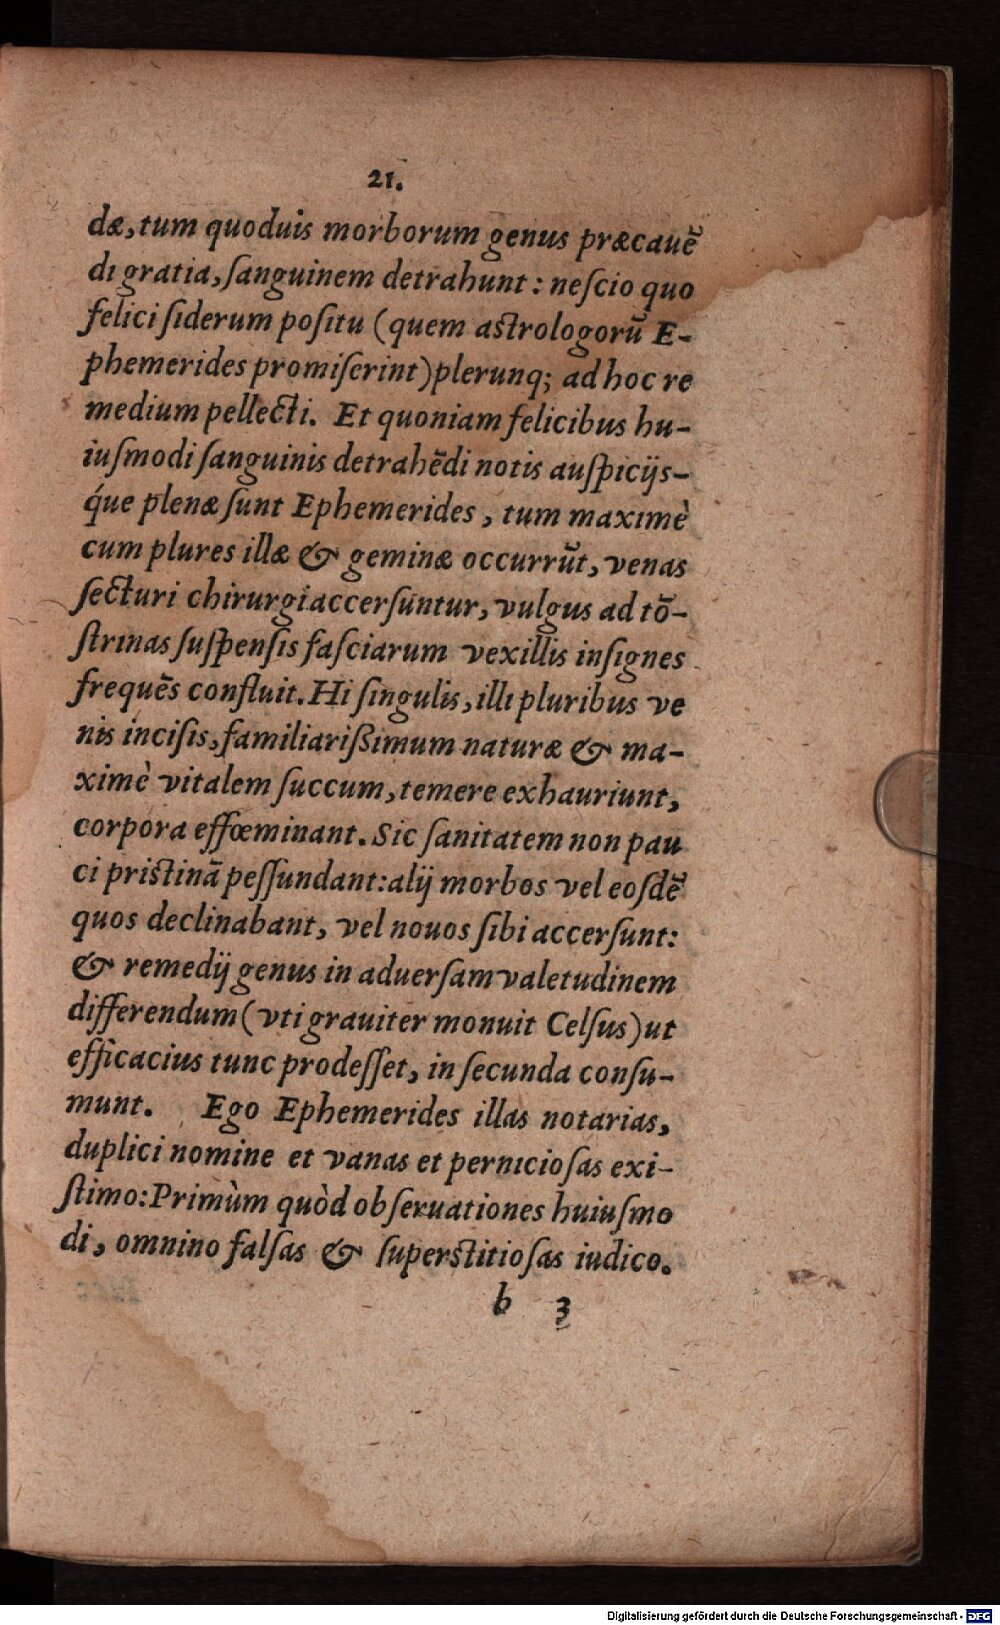 21.
dæ, tum quoduis morborum genus præcauẽ
di gratia, ſanguinem detrahunt: neſcio quo
felici ſiderum poſitu (quem aſtrologorũ E-
phemerides promiſerint) plerunq; ad hoc re
medium pellecti. Et quoniam felicibus hu-
iuſmodi ſanguinis detrahẽdi notis auſpicijs-
q́ue plenæ ſunt Ephemerides, tum maximè
cum plures illæ & geminæ occurrũt, venas
ſecturi chirurgi accerſuntur, vulgus ad tõ-
ſtrinas ſuſpenſis faſciarum vexillis inſignes
frequẽs confluit. Hi ſingulis, illi pluribus ve
nis inciſis, familiariſſimum naturæ & ma-
ximè vitalem ſuccum, temere exhauriunt,
corpora effœminant. Sic ſanitatem non pau
ci priſtinã peſſundant: alij morbos vel eoſdẽ
quos declinabant, vel nouos ſibi accerſunt:
& remedij genus in aduerſam valetudinem
differendum (vti grauiter monuit Celſus) ut
efficacius tunc prodeſſet, in ſecunda conſu-
munt. Ego Ephemerides illas notarias,
duplici nomine et vanas et pernicioſas exi-
ſtimo: Primùm quòd obſeruationes huiuſmo
di, omnino falſas & ſuperſtitioſas iudico.
b 3
Digitalisierung gefördert durch die Deutsche Forschungsgemeinschaft - DFG